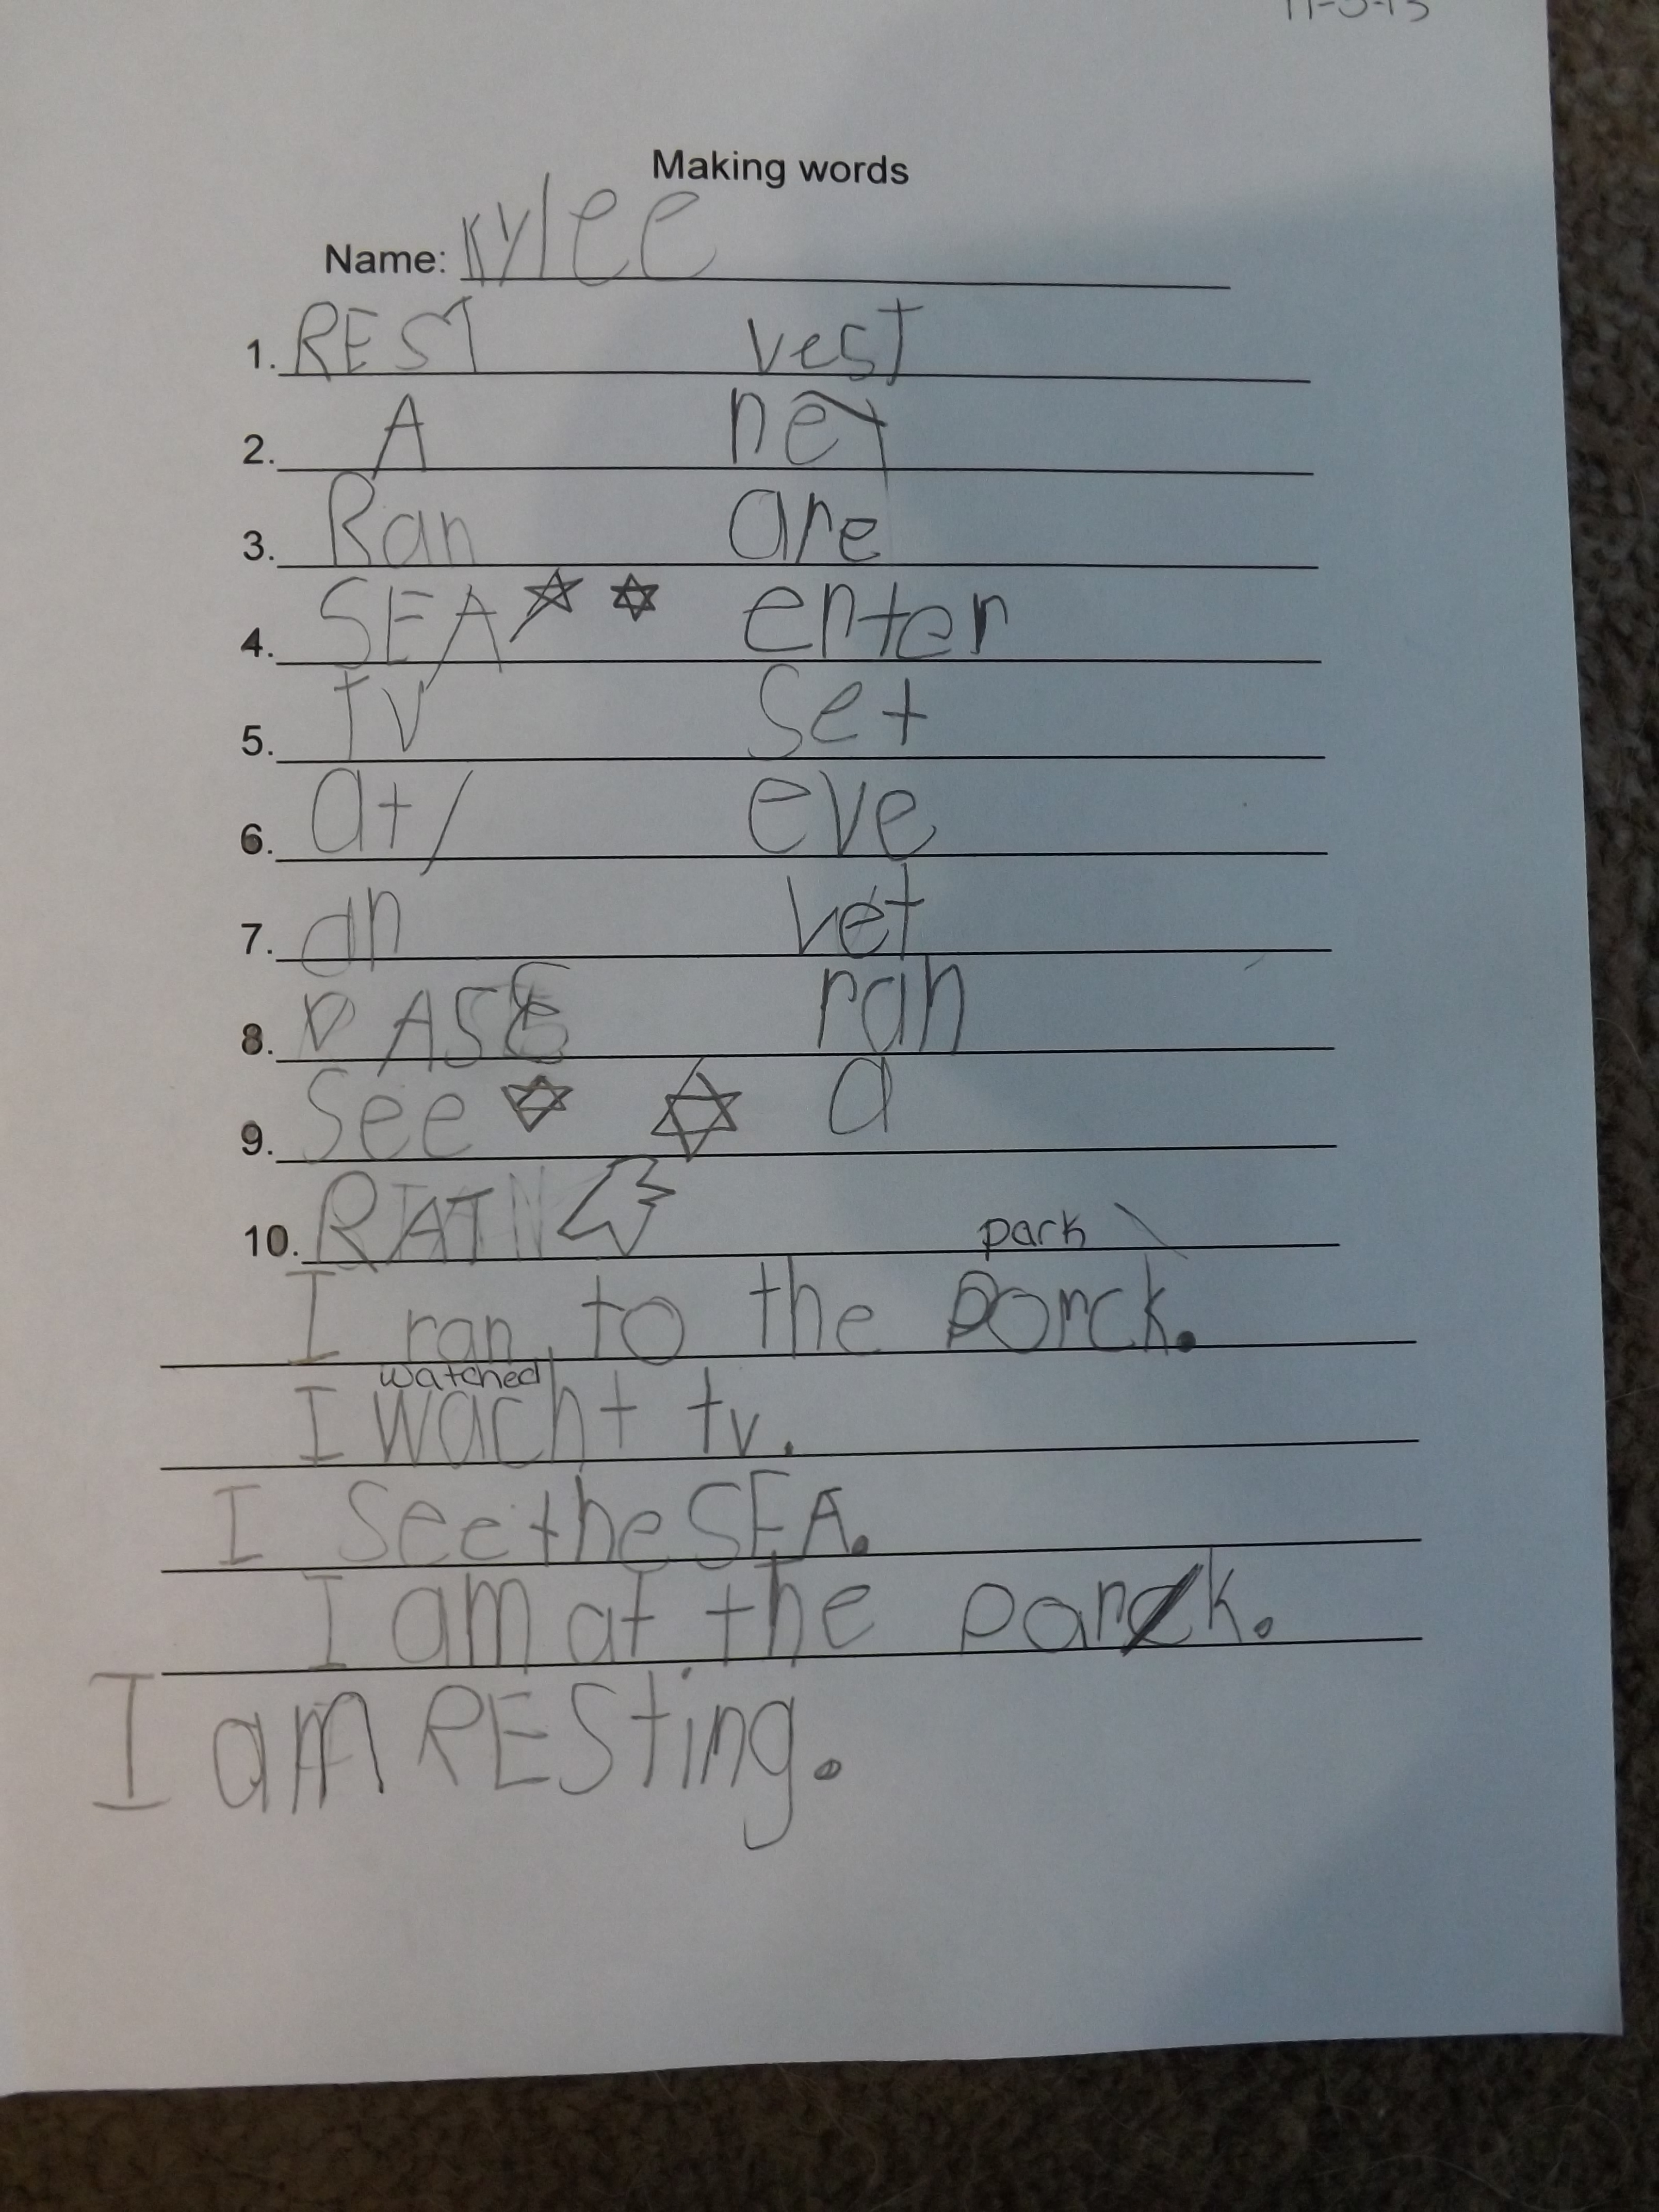 Making words
Name: Kylee
1. REST vest
2. A net
3. Ran are
4. SEA enter
5. TV set
6. at eve
7. an vet
8. ran
9. See a
10. park
I ran to the porck.
watched
I wacht tv.
I See the SEA.
I am at the park.
I am RESting.